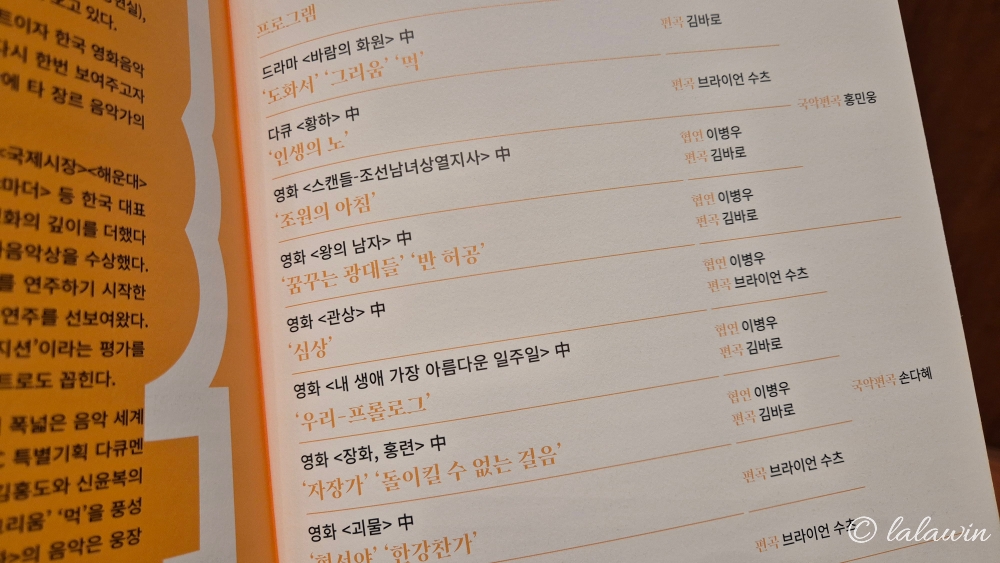 보고 있다.
트이자 한국 영화음악
다시 한번 보여주고자
에 타 장르 음악가의
<국제시장><해운대>
마더> 등 한국 대표
화의 깊이를 더했다
음악상을 수상했다.
를 연주하기 시작한
연주를 선보여왔다.
지션’이라는 평가를
트로도 꼽힌다.
폭넓은 음악 세계
특별기획 다큐멘
김홍도와 신윤복의
리움’ ‘먹’을 풍성
의 음악은 웅장
프로그램
드라마 <바람의 화원> 中
‘도화서’ ‘그리움’ ‘먹’
편곡 김바로
다큐 <황하> 中
‘인생의 노’
편곡 브라이언 수츠
국악편곡 홍민웅
영화 <스캔들-조선남녀상열지사> 中
‘조원의 아침’
협연 이병우
편곡 김바로
영화 <왕의 남자> 中
‘꿈꾸는 광대들’ ‘반 허공’
협연 이병우
편곡 김바로
영화 <관상> 中
‘심상’
협연 이병우
편곡 브라이언 수츠
영화 <내 생애 가장 아름다운 일주일> 中
‘우리-프롤로그’
협연 이병우
편곡 김바로
영화 <장화, 홍련> 中
‘자장가’ ‘돌이킬 수 없는 걸음’
협연 이병우
편곡 김바로
국악편곡 손다혜
영화 <괴물> 中
‘한강찬가’
편곡 브라이언 수츠
편곡 브라이언 수츠
© lalawin